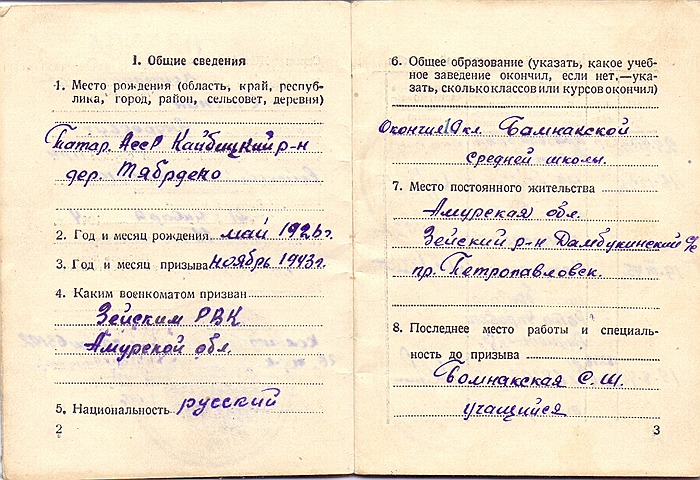 I. Общие сведения
1. Место рождения (область, край, респуб-
лика, город, район, сельсовет, деревня)
Татар. АССР Кайбицкий р-н
дер. Тябрдено
2. Год и месяц рождения май 1926 г.
3. Год и месяц призыва ноябрь 1943 г.
4. Каким военкоматом призван
Зейским РВК
Амурской обл.
5. Национальность русский
2
6. Общее образование (указать, какое учеб-
ное заведение окончил, если нет,—ука-
зать, сколько классов или курсов окончил)
Окончил 10 кл. Бомнакской
средней школы.
7. Место постоянного жительства
Амурская обл.
Зейский р-н Дамбукинский с/с
пр. Петропавловск.
8. Последнее место работы и специаль-
ность до призыва
Бомнакская С.Ш.
учащийся
3